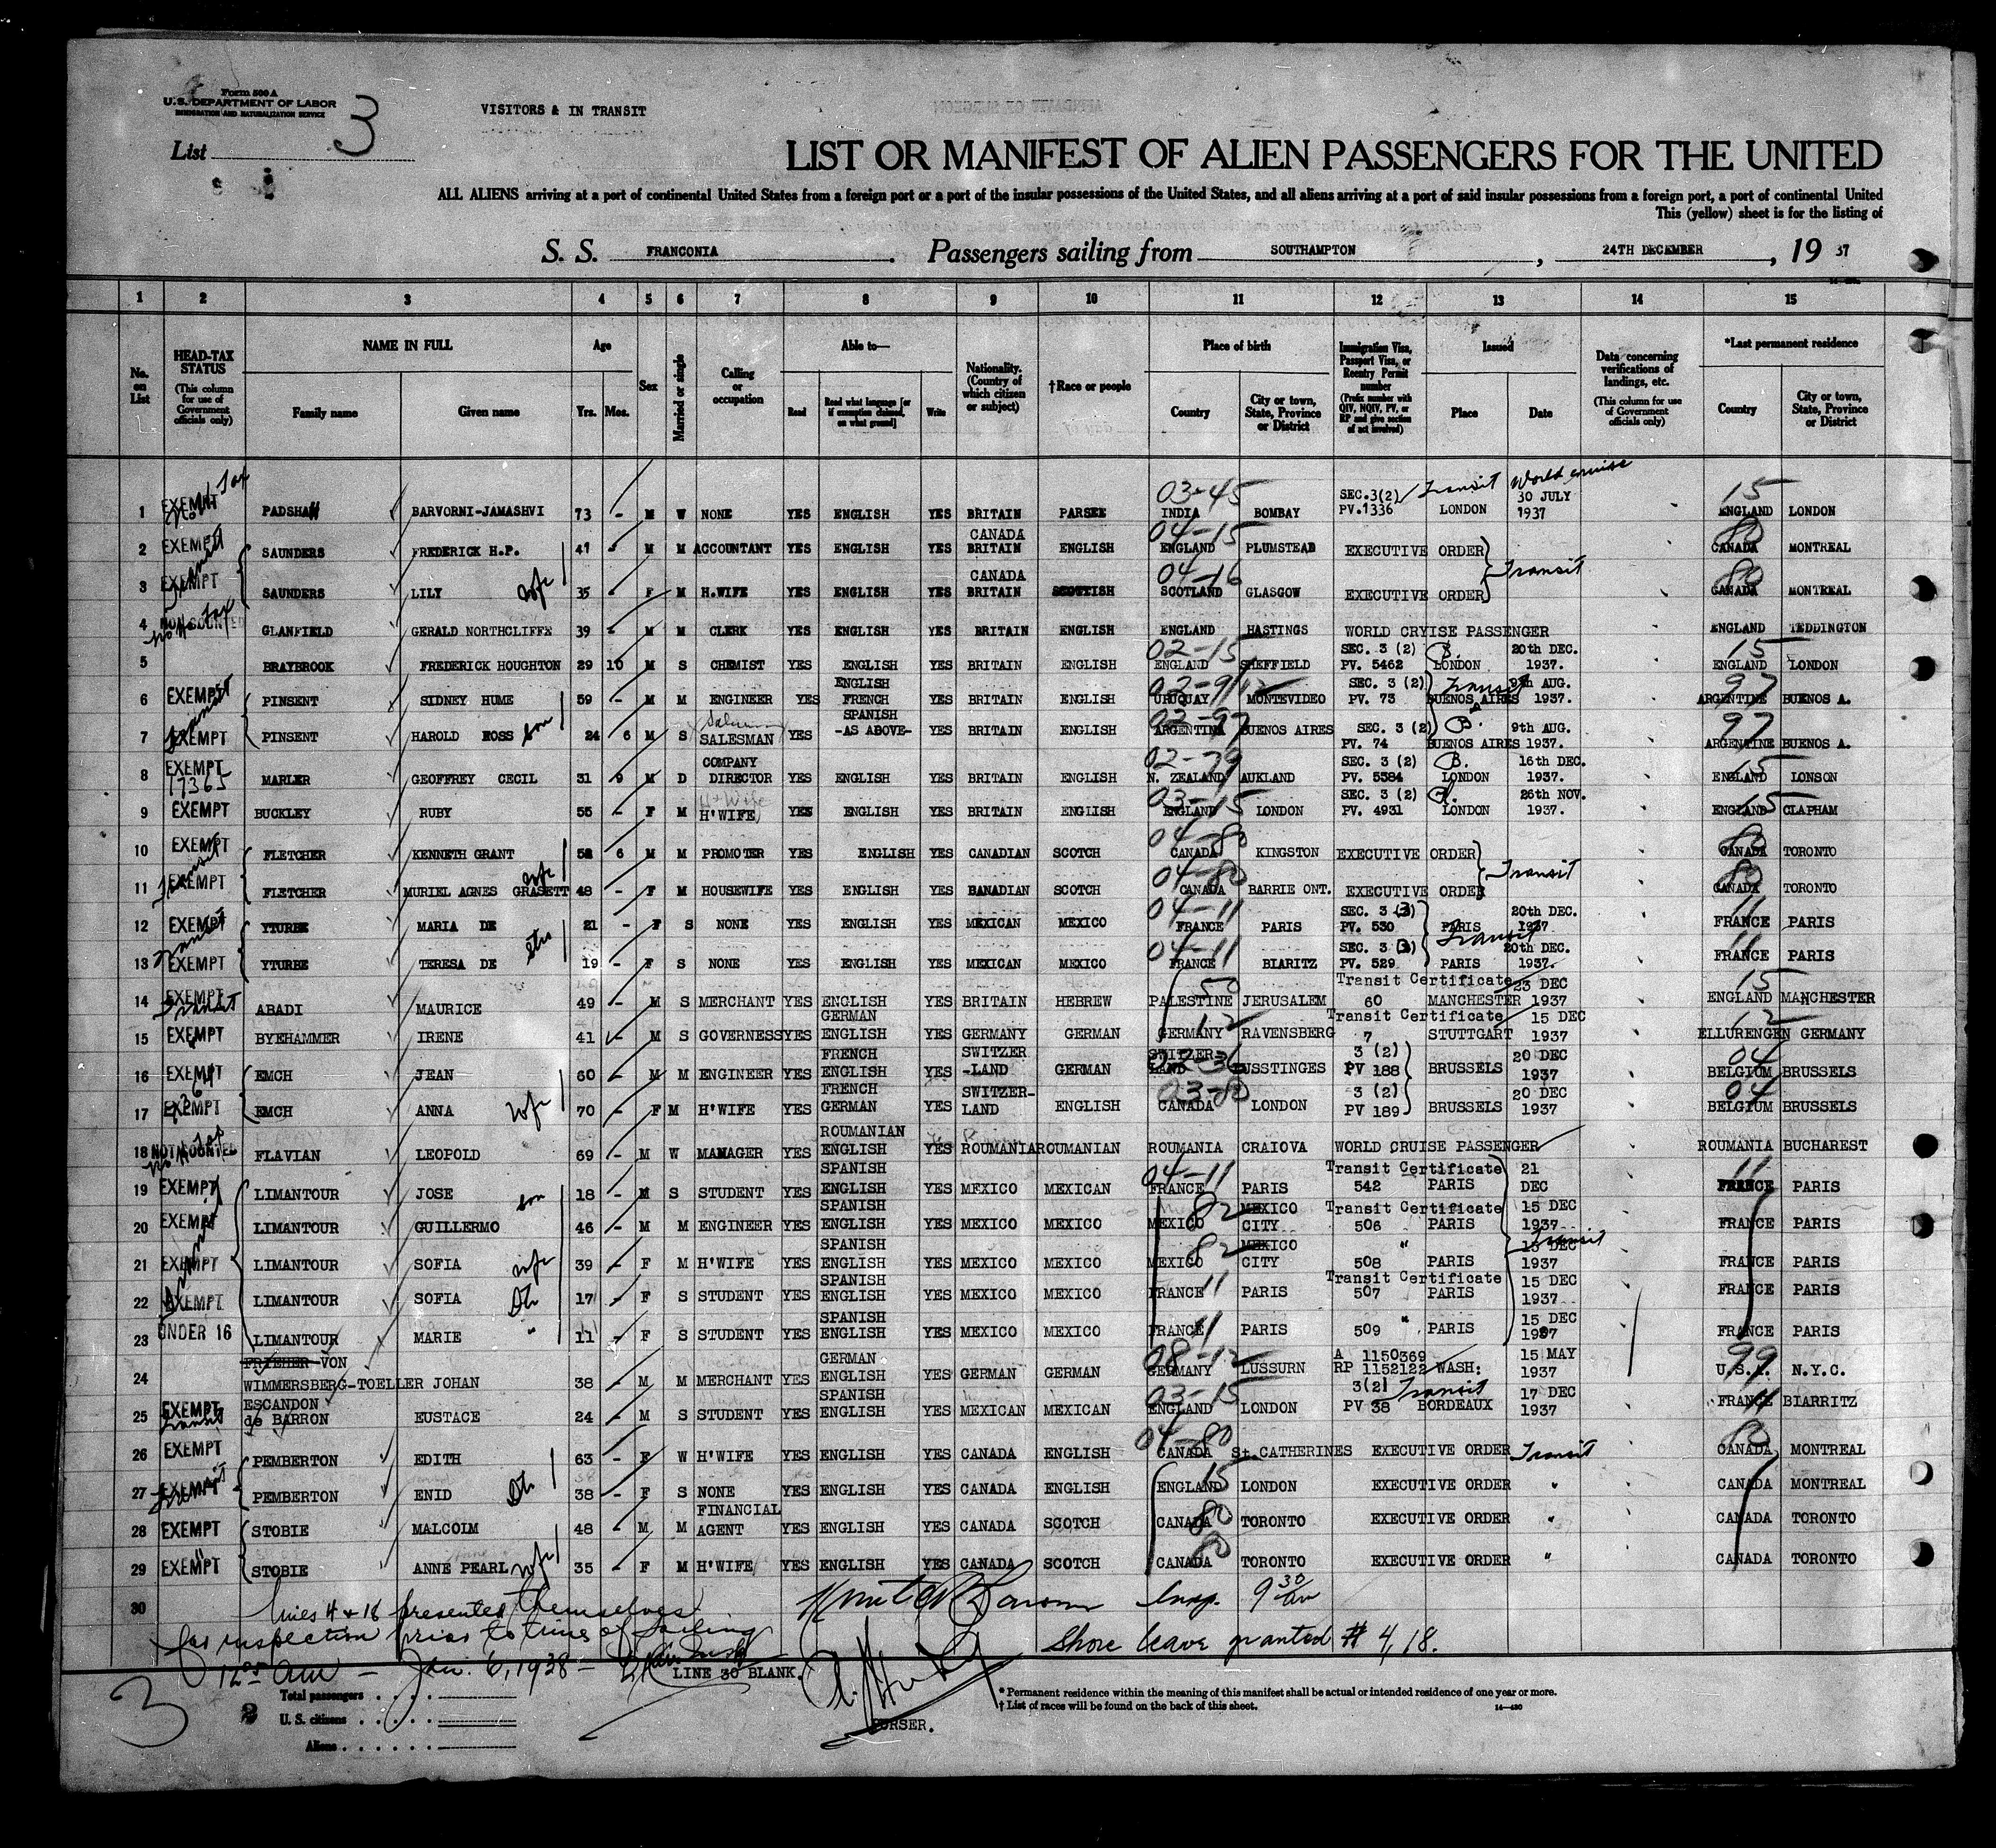 Form 500 A
U.S. DEPARTMENT OF LABOR
IMMIGRATION AND NATURALIZATION SERVICE
VISITORS & IN TRANSIT
List 3
LIST OR MANIFEST OF ALIEN PASSENGERS FOR THE UNITED
ALL ALIENS arriving at a port of continental United States from a foreign port or a port of the insular possessions of the United States, and all aliens arriving at a port of said insular possessions from a foreign port, a port of continental United
This (yellow) sheet is for the listing of
S. S. FRANCONIA Passengers sailing from SOUTHAMPTON, 24TH DECEMBER, 19 37
1 2 3 4 5 6 7 8 9 10 11 12 13 14 15
No. on List
HEAD-TAX STATUS (This column for use of Government officials only)
NAME IN FULL Family name Given name
Age Yrs. Mos.
Sex
Married or single
Calling or occupation
Able to— Read Read what language [or if exemption claimed, on what ground] Write
Nationality. (Country of which citizen or subject)
†Race or people
Place of birth Country City or town, State, Province or District
Immigration Visa, Passport Visa, or Reentry Permit number (Prefix number with QIV, NQIV, PV, or RP and give section of act involved)
Issued Place Date
Data concerning verifications of landings, etc. (This column for use of Government officials only)
*Last permanent residence Country City or town, State, Province or District
1 EXEMPT No Hd Tax PADSHAH BARVORNI-JAMASHVI 73 - M W NONE YES ENGLISH YES BRITAIN PARSEE 03-45 INDIA BOMBAY SEC.3(2) PV.1336 Transit World cruise LONDON 30 JULY 1937 15 ENGLAND LONDON
2 EXEMPT SAUNDERS FREDERICK H.P. 41 - M M ACCOUNTANT YES ENGLISH YES CANADA BRITAIN ENGLISH 04-15 ENGLAND PLUMSTEAD EXECUTIVE ORDER 80 CANADA MONTREAL
3 EXEMPT Transit SAUNDERS LILY wife 35 - F M H.WIFE YES ENGLISH YES CANADA BRITAIN SCOTTISH 04-16 SCOTLAND GLASGOW EXECUTIVE ORDER Transit 80 CANADA MONTREAL
4 NON COUNTED No Hd Tax GLANFIELD GERALD NORTHCLIFFX 39 - M M CLERK YES ENGLISH YES BRITAIN ENGLISH ENGLAND HASTINGS WORLD CRYISE PASSENGER ENGLAND TEDDINGTON
5 BRAYBROOK FREDERICK HOUGHTON 29 10 M S CHEMIST YES ENGLISH YES BRITAIN ENGLISH 02-15 ENGLAND SHEFFIELD SEC. 3 (2) PV. 5462 B. LONDON 20th DEC. 1937. 15 ENGLAND LONDON
6 EXEMPT PINSENT SIDNEY HUME 59 - M M ENGINEER YES ENGLISH FRENCH SPANISH YES BRITAIN ENGLISH URUQUAY MONTEVIDEO SEC. 3 (2) PV. 73 Transit BUENOS AIRES 9th AUG. 1937. 97 ARGENTINE BUENOS A.
7 EXEMPT Transit PINSENT HAROLD ROSS son 24 6 M S SALESMAN YES -AS ABOVE- YES BRITAIN ENGLISH 02-97 ARGENTINA BUENOS AIRES SEC. 3 (2) PV. 74 B. BUENOS AIRES 9th AUG. 1937. 97 ARGENTINE BUENOS A.
8 EXEMPT 17365 MARLER GEOFFREY CECIL 31 9 M D COMPANY DIRECTOR YES ENGLISH YES BRITAIN ENGLISH 02-79 N. ZEALAND AUKLAND SEC. 3 (2) PV. 5584 B. LONDON 16th DEC. 1937. 15 ENGLAND LONSON
9 EXEMPT BUCKLEY RUBY 55 - F M H'WIFE YES ENGLISH YES BRITAIN ENGLISH 03-15 ENGLAND LONDON SEC. 3 (2) PV. 4931 LONDON 26th NOV. 1937. 15 ENGLAND CLAPHAM
10 EXEMPT FLETCHER KENNETH GRANT 52 6 M M PROMOTER YES ENGLISH YES CANADIAN SCOTCH 04-80 CANADA KINGSTON EXECUTIVE ORDER 80 CANADA TORONTO
11 EXEMPT Transit FLETCHER MURIEL AGNES GRASETT wife 48 - F M HOUSEWIFE YES ENGLISH YES BANADIAN SCOTCH 04-80 CANADA BARRIE ONT. EXECUTIVE ORDER Transit 80 CANADA TORONTO
12 EXEMPT YTURBE MARIA DE 21 - F S NONE YES ENGLISH YES MEXICAN MEXICO 04-11 FRANCE PARIS SEC. 3 (3) PV. 530 PARIS 20th DEC. 1937 11 FRANCE PARIS
13 EXEMPT Transit YTURBE TERESA DE 19 - F S NONE YES ENGLISH YES MEXICAN MEXICO 04-11 FRANCE BIARITZ SEC. 3 (3) PV. 529 Transit PARIS 20th DEC. 1937. 11 FRANCE PARIS
14 EXEMPT Transit ABADI MAURICE 49 - M S MERCHANT YES ENGLISH YES BRITAIN HEBREW 50 PALESTINE JERUSALEM Transit Certificate 60 MANCHESTER 23 DEC 1937 15 ENGLAND MANCHESTER
15 EXEMPT BYEHAMMER IRENE 41 - M S GOVERNESS YES GERMAN ENGLISH YES GERMANY GERMAN GERMANY 12 RAVENSBERG Transit Certificate 7 STUTTGART 15 DEC 1937 12 ELLURENGEN GERMANY
16 EXEMPT EMCH JEAN 60 - M M ENGINEER YES FRENCH ENGLISH YES SWITZER -LAND GERMAN SWITZER- LAND 02-36 LUSSTINGES 3 (2) PV 188 BRUSSELS 20 DEC 1937 04 BELGIUM BRUSSELS
17 EXEMPT EMCH ANNA wife 70 - F M H'WIFE YES FRENCH GERMAN YES SWITZER- LAND ENGLISH 03-80 CANADA LONDON 3 (2) PV 189 BRUSSELS 20 DEC 1937 04 BELGIUM BRUSSELS
18 NOT COUNTED No Hd Tax FLAVIAN LEOPOLD 69 - M W MANAGER YES ROUMANIAN ENGLISH YES ROUMANIA ROUMANIAN ROUMANIA CRAIOVA WORLD CRUISE PASSENGER ROUMANIA BUCHAREST
19 EXEMPT LIMANTOUR JOSE son 18 - M S STUDENT YES SPANISH ENGLISH YES MEXICO MEXICAN 04-11 FRANCE PARIS Transit Certificate 542 PARIS 21 DEC 11 FRANCE PARIS
20 EXEMPT LIMANTOUR GUILLERMO 46 - M M ENGINEER YES SPANISH ENGLISH YES MEXICO MEXICO MEXICO 82 MEXICO CITY Transit Certificate 506 PARIS 15 DEC 1937 FRANCE PARIS
21 EXEMPT Transit LIMANTOUR SOFIA wife 39 - F M H'WIFE YES SPANISH ENGLISH YES MEXICO MEXICO MEXICO 82 MEXICO CITY " 508 PARIS 15 DEC 1937 Transit FRANCE PARIS
22 EXEMPT LIMANTOUR SOFIA Dtr 17 - F S STUDENT YES SPANISH ENGLISH YES MEXICO MEXICO FRANCE 11 PARIS Transit Certificate 507 PARIS 15 DEC 1937 FRANCE PARIS
23 UNDER 16 LIMANTOUR MARIE " 11 - F S STUDENT YES SPANISH ENGLISH YES MEXICO MEXICO FRANCE 11 PARIS 509 " PARIS 15 DEC 1937 FRANCE PARIS
24 FRIEHER VON WIMMERSBERG-TOELLER JOHAN 38 - M M MERCHANT YES GERMAN ENGLISH YES GERMAN GERMAN 08-12 GERMANY LUSSURN A 1150369 RP 1152122 WASH: 15 MAY 1937 99 U.S.A. N.Y.C.
25 EXEMPT Transit ESCANDON de BARRON EUSTACE 24 - M S STUDENT YES SPANISH ENGLISH YES MEXICAN MEXICAN 03-15 ENGLAND LONDON 3(2) PV 38 Transit BORDEAUX 17 DEC 1937 11 FRANCE BIARRITZ
26 EXEMPT PEMBERTON EDITH 63 - F W H'WIFE YES ENGLISH YES CANADA ENGLISH 04-80 CANADA St. CATHERINES EXECUTIVE ORDER Transit 80 CANADA MONTREAL
27 EXEMPT Transit PEMBERTON ENID Dtr 38 - F S NONE YES ENGLISH YES CANADA ENGLISH 15 ENGLAND LONDON EXECUTIVE ORDER " CANADA MONTREAL
28 EXEMPT STOBIE MALCOLM 48 - M M FINANCIAL AGENT YES ENGLISH YES CANADA SCOTCH 80 CANADA TORONTO EXECUTIVE ORDER " CANADA TORONTO
29 EXEMPT " STOBIE ANNE PEARL wife 35 - F M H'WIFE YES ENGLISH YES CANADA SCOTCH 80 CANADA TORONTO EXECUTIVE ORDER " CANADA TORONTO
30 Lines 4 & 18 presented themselves Insp. 9 30 am
for inspection prior to time of sailing Shore leave granted # 4, 18.
12 05 am — Jan. 6, 1938 —
LINE 30 BLANK.
3
Total passengers
2 U. S. citizens
Aliens
PURSER.
* Permanent residence within the meaning of this manifest shall be actual or intended residence of one year or more.
† List of races will be found on the back of this sheet.
14—430